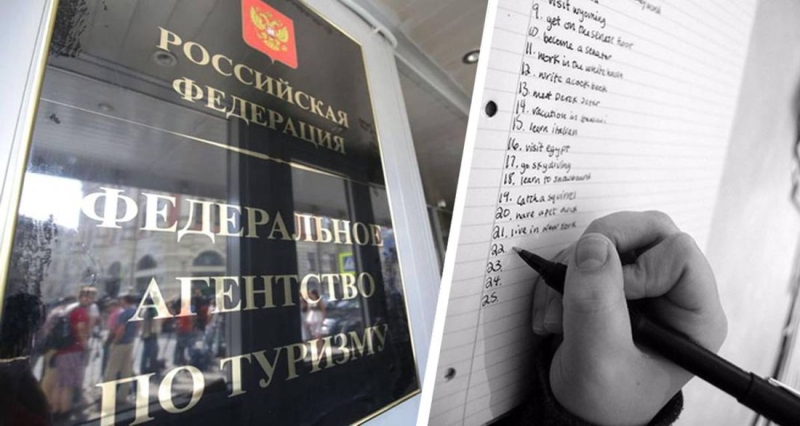 РОССИЙСКАЯ
ФЕДЕРАЦИЯ
ФЕДЕРАЛЬНОЕ
АГЕНТСТВО
ПО ТУРИЗМУ
9. visit wyoming
10. become a senator
11. work in the white house
12. write a cook book
13. meet Derek Jeter
14. vacation in
15. learn italian
16. visit egypt
17. go skydiving
18. learn to snowboard
19. catch a squirrel
20. have a pet
21. live in new york
22
23.
24.
25.